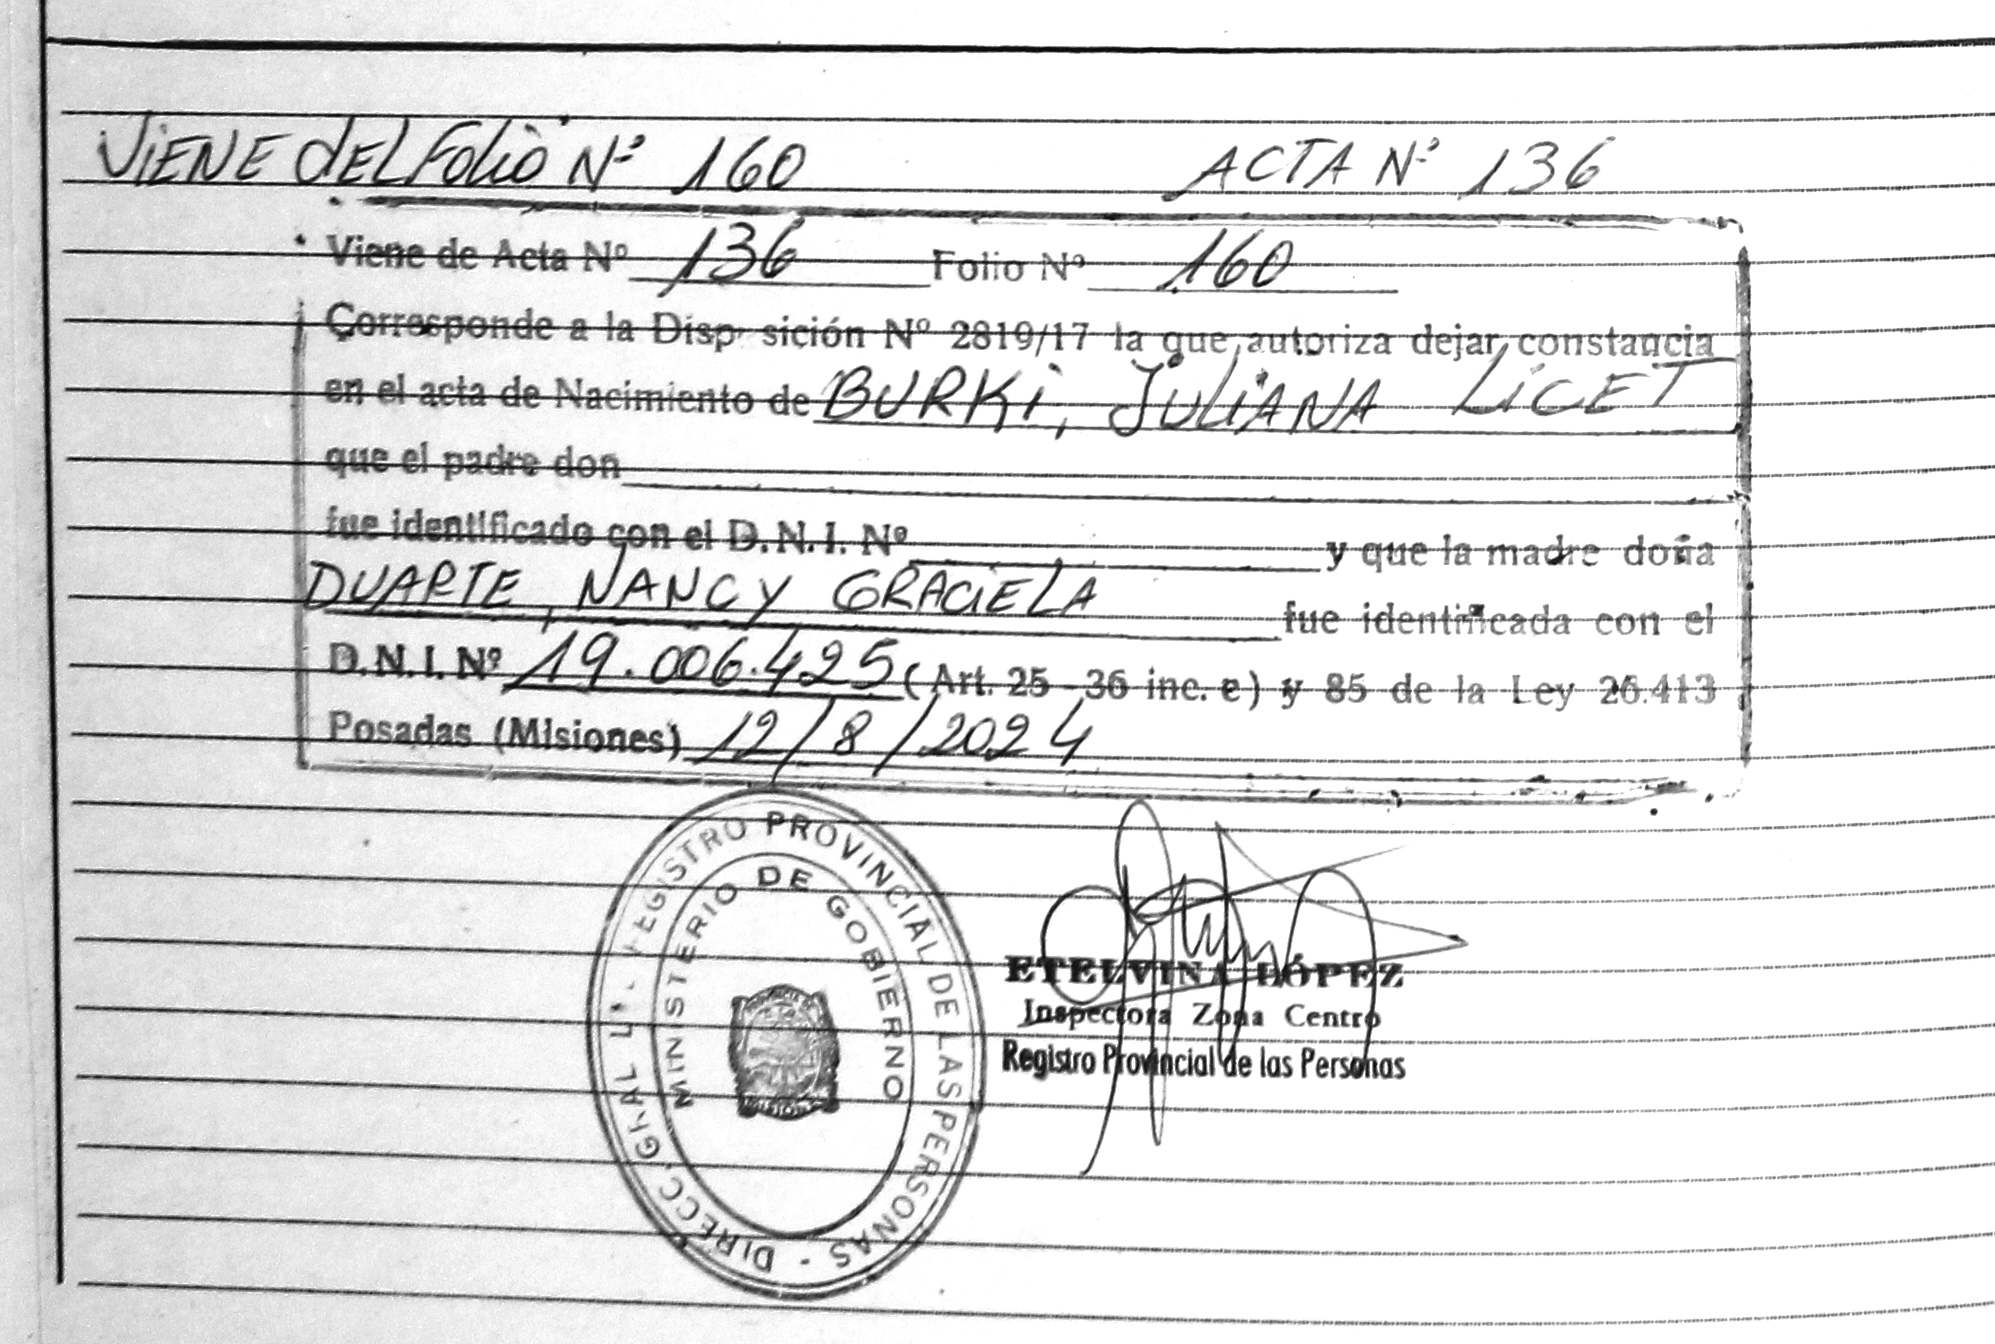 VIENE DEL FOLIO Nº 160 ACTA Nº 136
Viene de Acta Nº 136 Folio Nº 160
Corresponde a la Disp sición Nº 2819/17 la que autoriza dejar constancia
en el acta de Nacimiento de BURKI, JULIANA LICET
que el padre don
fue identificado con el D.N.I. Nº y que la madre doña
DUARTE, NANCY GRACIELA fue identificada con el
D.N.I. Nº 19.006.425 (Art. 25 - 36 inc. e) y 85 de la Ley 26.413
Posadas (Misiones) 12/8/2024
DIRECC. GRAL REGISTRO PROVINCIAL DE LAS PERSONAS -
MINISTERIO DE GOBIERNO
ETELVINA LÓPEZ
Inspectora Zona Centro
Registro Provincial de las Personas